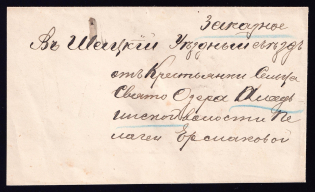 Заказное
Въ Шацкій Уѣздный съѣздъ
отъ Крестьянки Сельца
Свято Озера Алгад
инской волости Пе
лагеи Ермаковой